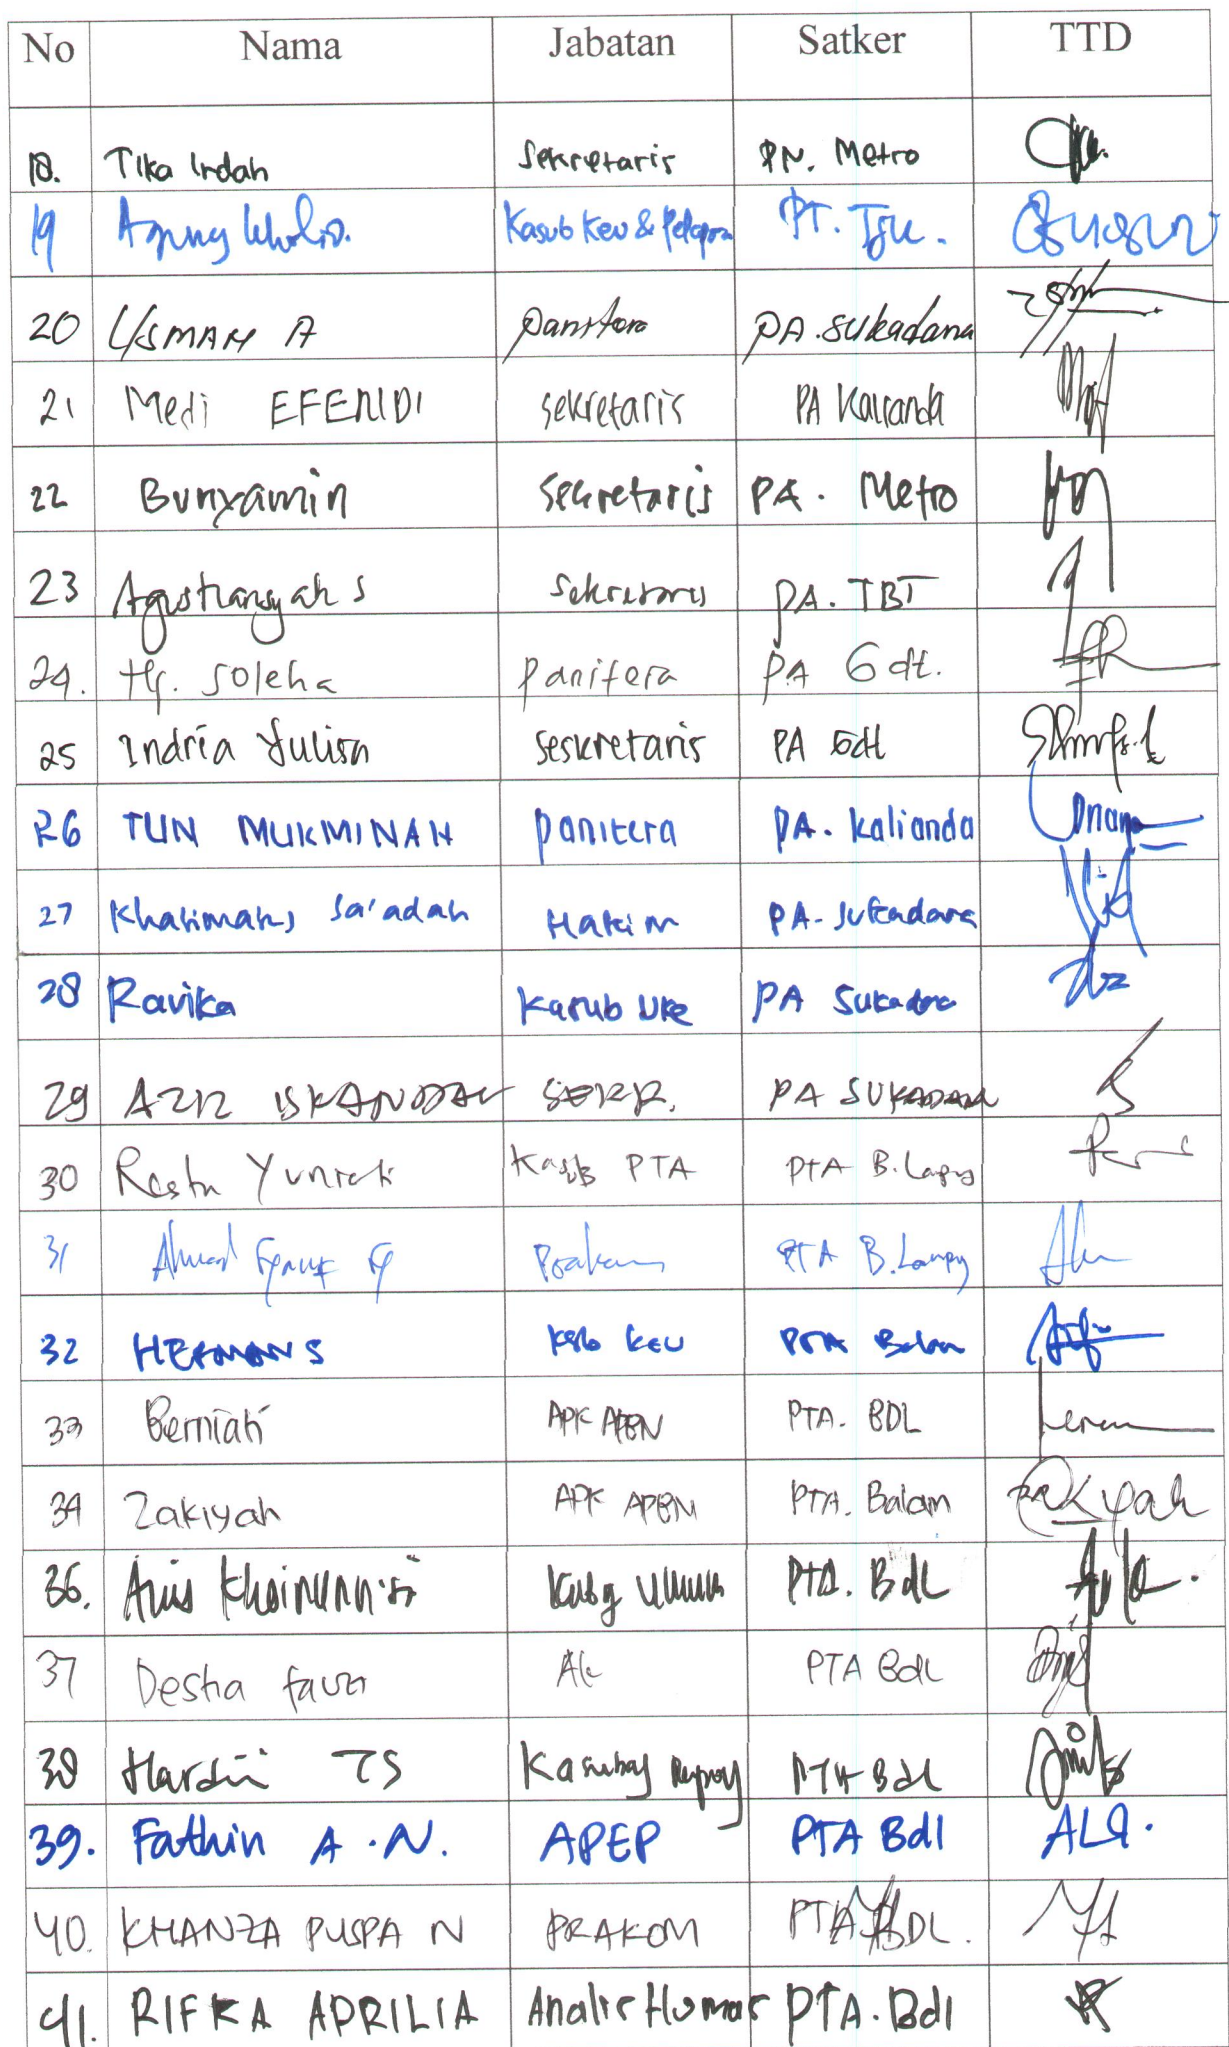 No Nama Jabatan Satker TTD
18. Tika Indah Sekretaris PN. Metro
19 Agung Kholid. Kasub Keu & Pelapora PT. Tjk.
20 USMAN A panitera PA. Sukadana
21 Medi EFENIDI sekretaris PA Kalianda
22 Bunyamin Sekretaris PA. Metro
23 Agustiansyah S Sekretaris PA. TBT
24. Hj. Soleha Panitera PA Gdt.
25 Indria Yulisa Seskretaris PA Gdt
26 TUN MUKMINAH panitera PA. Kalianda
27 Sa'adah Hakim PA. Sukadana
28 Ravika Kasub PA Sukadana
29 ISKANDAR SEKR. PA SUKADANA
30 Kasub PTA PTA
31 Ahmad PTA
32 HERMAN S keu PTA Balam
33 Berniati APK APBN PTA. BDL
34 Zakiyah APK APBN PTA. Balam Zakiyah
36. Anis Umum PTA. Bdl
37 PTA Bdl
38 TS Kasubag PTA Bdl
39. Fathin A.N. APEP PTA Bdl
40. KHANZA PUSPA N PRAKOM PTA BDL.
41. RIFKA APRILIA Analis Humas PTA. Bdl